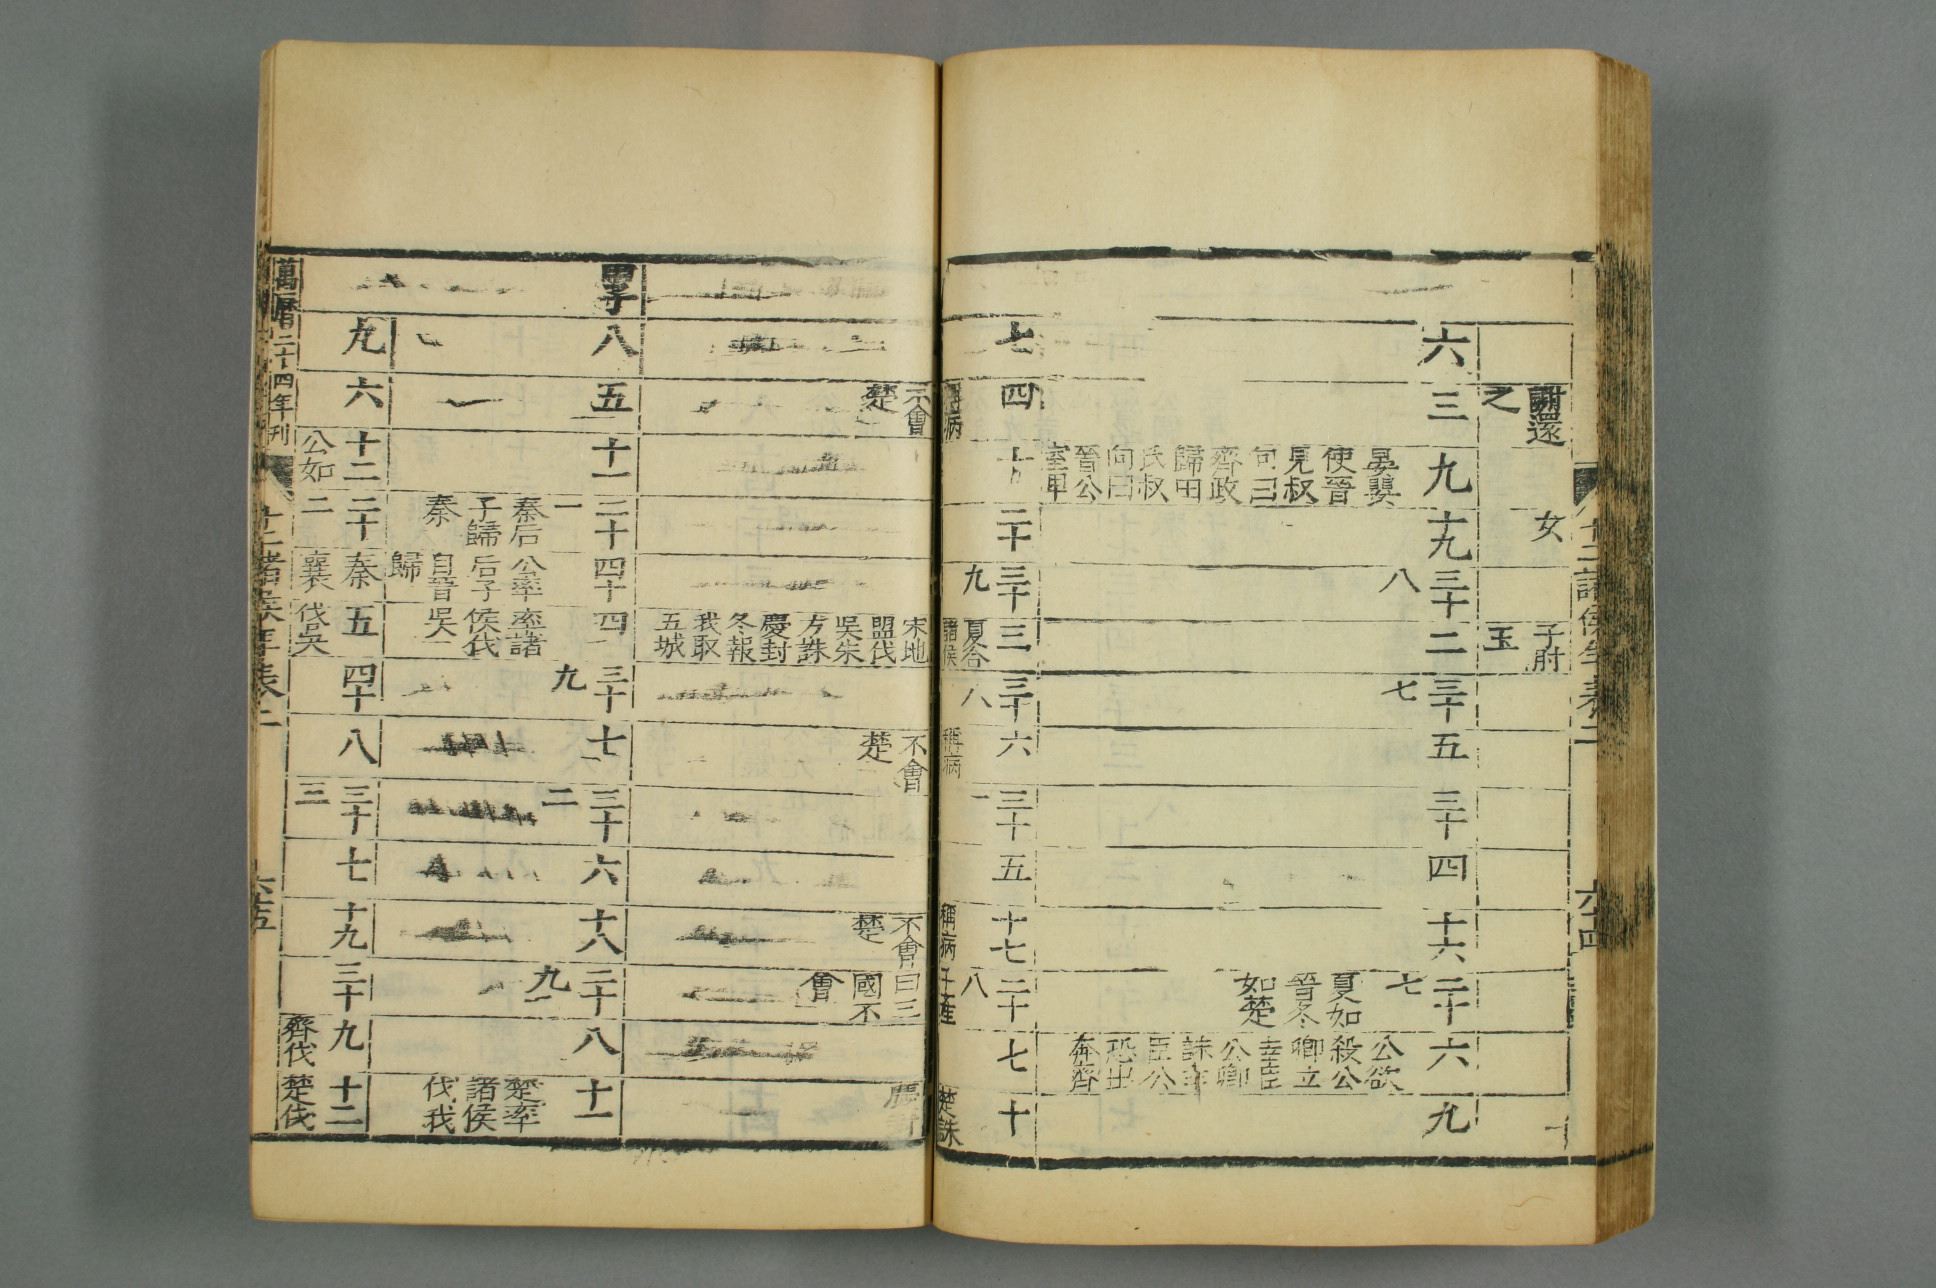 謝還
之
女
子肘
玉
十二諸侯年表二
六十四
六
三
九
晏嬰
使晉
見叔
向曰
齊政
歸田
氏叔
向曰
晉公
室卑
十九
三十
八
二
三十
七
五
三十
四
十六
二十
七
夏如
晉冬
如楚
六
公欲
殺公
卿立
幸臣
公卿
誅幸
臣公
恐出
奔齊
九
七
四
稱病
不會
楚
十
二十
三十
九
三
夏合
諸侯
宋地
盟伐
吳朱
方誅
慶封
冬報
我取
五城
三十
八
六
稱病
不會
楚
三十
一
五
十七
稱病
不會
楚
二十
八
子產
曰三
國不
會
七
十
楚誅
慶
甲子
八
五
十一
二十
一
秦后
子歸
秦
四十
公卒
后子
自晉
歸
四
率諸
侯伐
吳
三十
九
七
三十
二
六
十八
二十
九
八
十一
楚率
諸侯
伐我
九
六
十二
公如
二十
二
秦
襄
五
伐吳
四十
八
三十
三
七
十九
三十
九
齊伐
十二
楚伐
萬曆二十四年刊
十二諸侯年表二
六十五